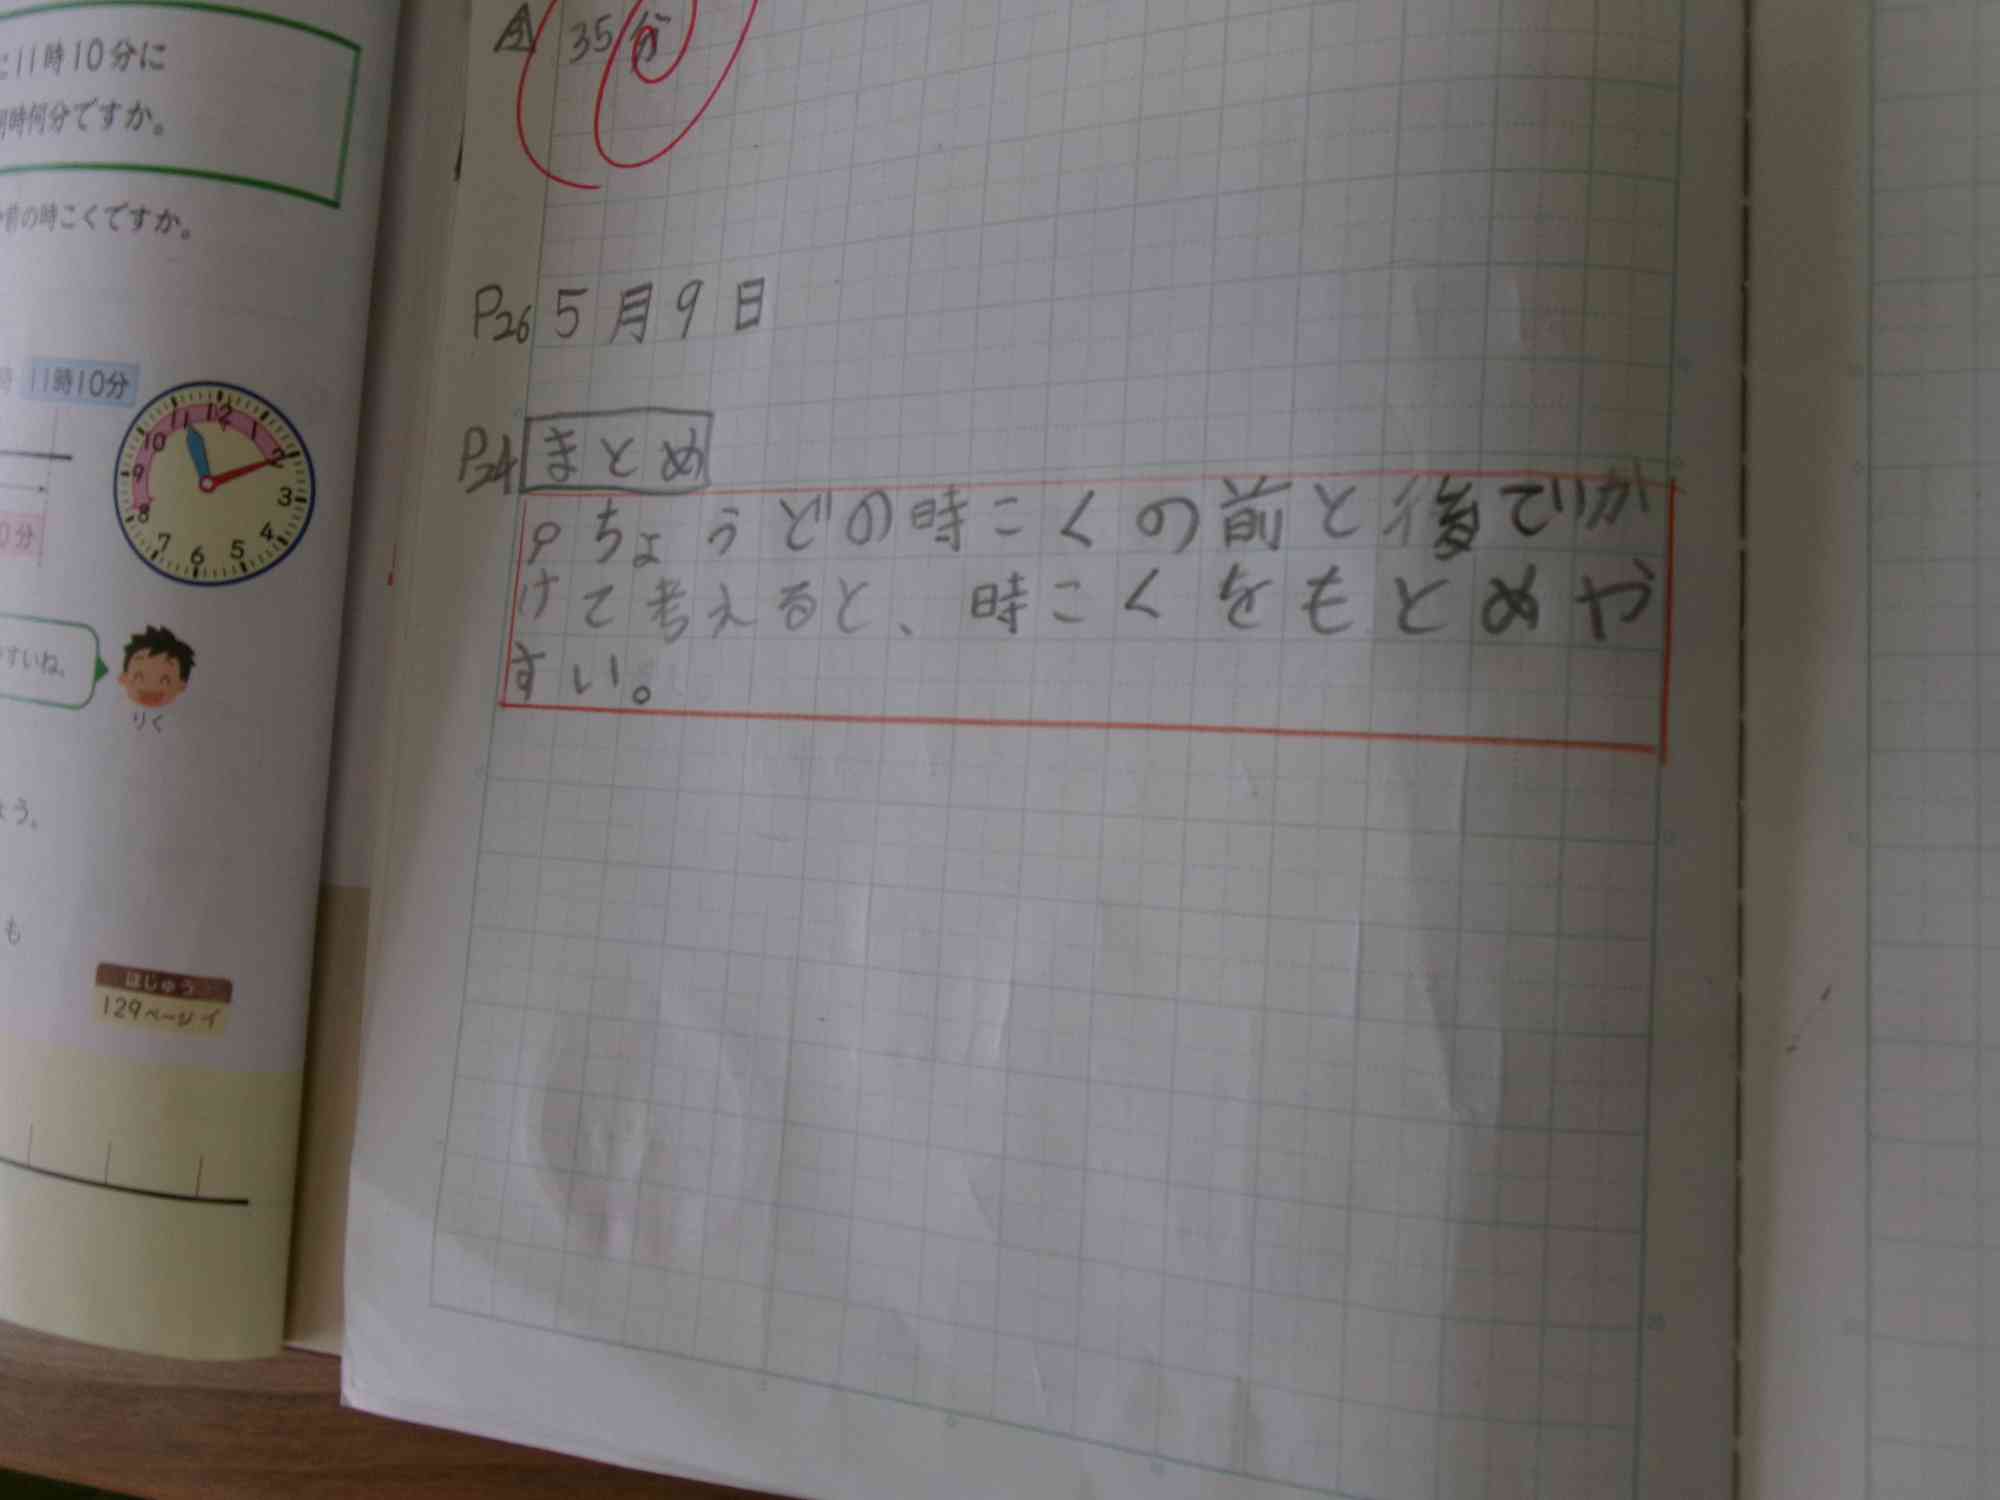 に11時10分に
何時何分ですか。
前の時こくですか。
時 11時10分
0分
12
1
2
3
4
5
6
7
8
9
10
11
すいね。
りく
ょう。
も
ほじゅう
129ページイ
答 35分
P26 5月9日
P24 まとめ
ちょうどの時こくの前と後でわ
けて考えると、時こくをもとめや
すい。